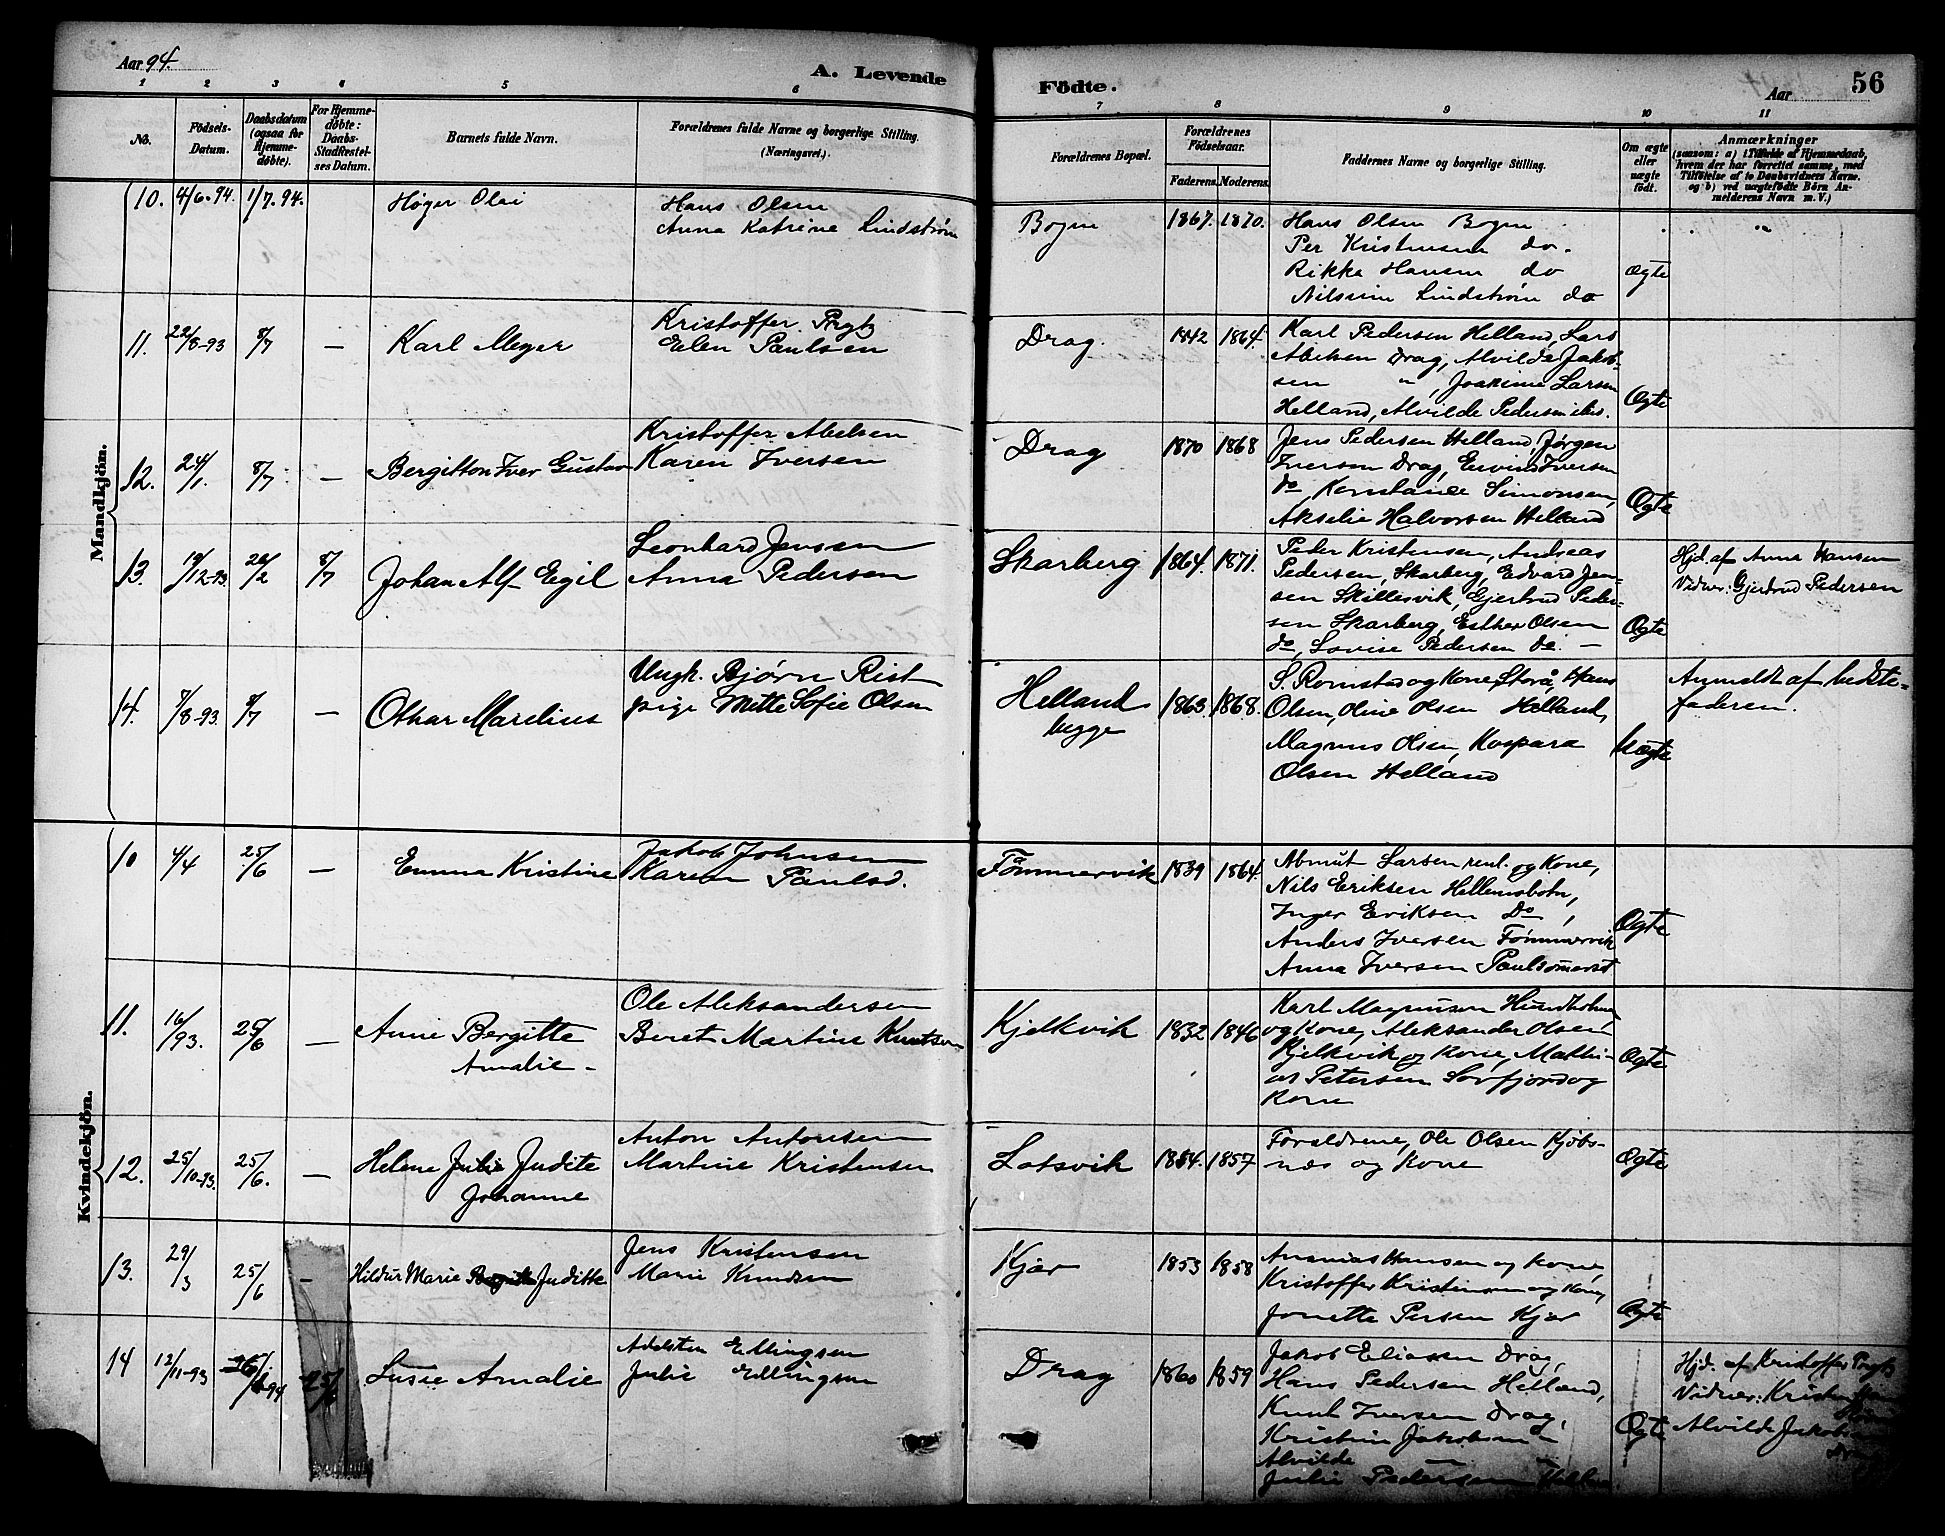 Aar 94.
A. Levende
Födte.
Aar
56
1 2 3 4 5 6
7 8 9 10 11
No.
Födsels-Datum.
Daabsdatum (ogsaa for Hjemmedöbte).
For Hjemmedöbte: Daabs-Stadfæstelses Datum.
Barnets fulde Navn.
Forældrenes fulde Navne og borgerlige Stilling. (Næringsvei.)
Forældrenes Bopæl.
Forældrenes Födselsaar.
Faderens. Moderens.
Faddernes Navne og borgerlige Stilling.
Om ægte eller uægte födt.
Anmærkninger
(saasom: a) i Tilfælde af Hjemmedaab, hvem der har forrettet samme, med Tilföielse af to Daabsvidners Navne, og b) ved uægtefödte Börn Anmelderens Navn m.V.)
Mandkjön.
10. 4/6.94. 1/7.94. Høger Olai
Hans Olsen
Anna Katrine Lindstrøm
Bogne 1867. 1870.
Hans Olsen Bogne
Per Kristensen do.
Rikka Hansen do
Nilsine Lindstrøm do
ægte
11. 22/8-93 8/7 — Karl Meyer
Kristoffer Prytz
Elen Paulsen
Drag. 1842 1864.
Karl Pedersen Helland, Lars
Abelsen Drag, Alvilde Jakob-
sen " , Joakime Larsen
Helland, Alvilde Pedersen ibs.
Ægte
12. 24/1. 8/7 — Bergitton Iver Gustav
Kristoffer Abelsen
Karen Iversen
Drag 1870 1868
Jens Pedersen Helland Jørgen
Iversen Drag, Iversen
do, Konstanse Simonsen,
Akselie Halvorsen Helland
Ægte
13. 19/12-93. 26/2 8/7 Johan Alf Egil
Leonhard Jensen
Anna Pedersen
Skarberg 1864. 1871.
Peder Kristensen, Andreas
Pedersen, Skarberg, Edvard Jen-
sen Skillesvik, Gjertrud Peder-
sen Skarberg, Esther Olsen
do, Lovise Pedersen do. —
Ægte
Hjd. af Anna Hansen
Vidner: Gjertrud Pedersen
14. 7/8-93. 8/7 — Othar Marelius
Ungk. Bjørn Rist
pige Mette Sofie Olsen
Helland
begge
1863. 1868.
S. Romstad og Kone, Storå, Hans
Olsen, Oline Olsen Helland,
Magnus Olsen, Kaspara
Olsen Helland
Uægte
Anmeldt af bedste-
faderen.
Kvindekjön.
10 4/4 25/6 — Emma Kristine
Jakob Johnsen
Karen Paulsd.
Tømmervik 1839 1864.
Amut Larsen og Kone,
Nils Eriksen Hellemsbotn,
Inger Eriksen Do ,
Anders Iversen Tømmervik
Anna Iversen
Ægte
11. 16/93. 25/6 — Anne Bergitte
Amalie -
Ole Aleksandersen
Beret Martine Knutsen
Kjelkvik 1832 1846
Karl Magnusen Hundholmen
og Kone, Aleksander Olsen
Kjelkvik og Kone, Mathi-
as Petersen Sørfjord og
Kone
Ægte
12. 25/10-93. 25/6. — Helene Julie Judite
Johanne
Anton Antonsen
Martine Kristensen
Lotsvik 1854. 1857
Forældrene, Ole Olsen Kjøbs-
næs og Kone
Ægte
13. 29/3 25/6 — Hildur Marie Juditte
Jens Kristensen
Marie Knudsen
Kjær 1853 1858
Ananias Hansen og Kone,
Kristoffer Kristensen og Kone,
Jonette Persen Kjær
Ægte
14 12/11-93 25/6 Susie Amalie
Adelsten Ellingsen
Julie Ellingsen
Drag 1860 1859
Jakob Eliassen Drag,
Hans Pedersen Helland,
Knut Iversen Drag,
Kristine Jakobsen "
Alvilde — "
Julie Pedersen Helland
Ægte
Hjd. af Kristoffer Prytz
Vidner: Kristen
Alvilde Jakobsen
Drag